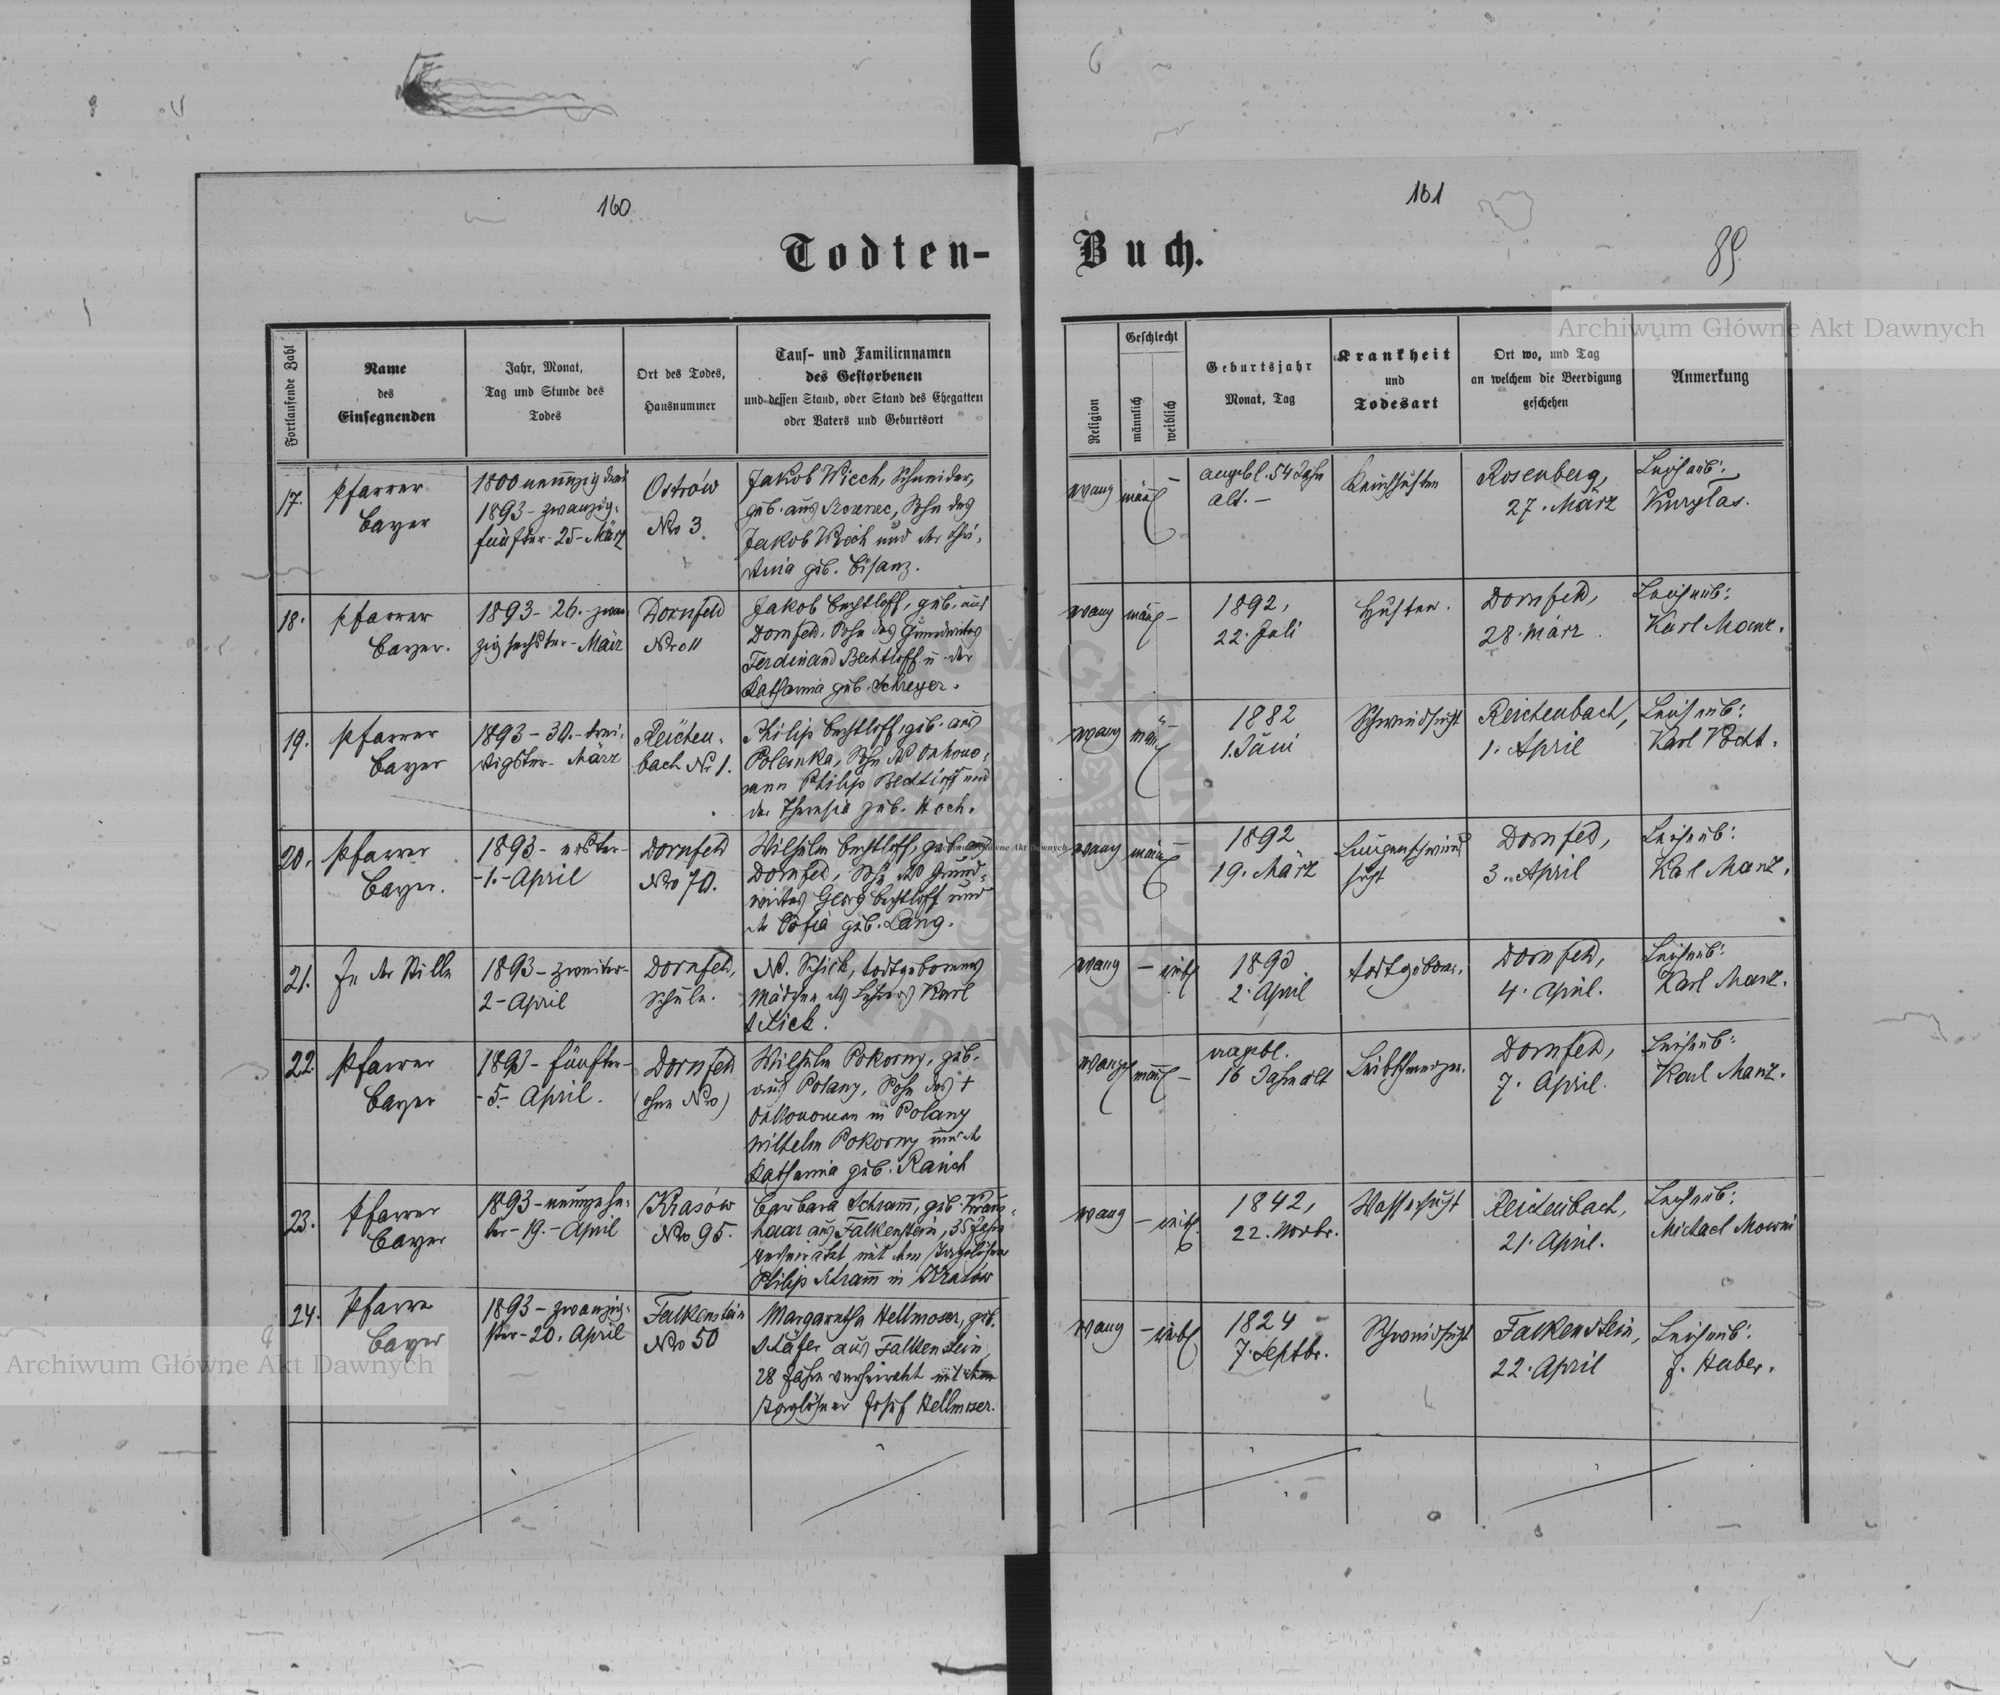 160
161
Todten-
Buch.
89
Archiwum Główne Akt Dawnych
Fortlaufende Zahl
Name
des
Einsegnenden
Jahr, Monat,
Tag und Stunde des
Todes
Ort des Todes,
Hausnummer
Tauf- und Familiennamen
des Gestorbenen
und dessen Stand, oder Stand des Ehegatten
oder Vaters und Geburtsort
Religion
Geschlecht
männlich
weiblich
Geburtsjahr
Monat, Tag
Krankheit
und
Todesart
Ort wo, und Tag
an welchem die Beerdigung
geschehen
Anmerkung
17.
Pfarrer
Bayer
1800 neunzig drei
1893 - zwanzig-
fünfter - 25 - März
Ostrów
Nro 3.
Jakob Wiech, Schneider,
geb. aus Sohn des
Jakob Wiech und der Chri-
stina geb. Bisanz.
evang
männl
angebl. 54 Jahre
alt. -
Keuchhusten
Rosenberg,
27. März
Leichenb:
18.
Pfarrer
Bayer.
1893 - 26. - zwan-
zig sechster - März
Dornfeld
Nro 11
Jakob Bechtloff, geb. aus
Dornfeld, Sohn des Grundwirtes
Ferdinand Bechtloff u. der
Katharina geb. Schreyer.
evang
männl -
1892,
22. Juli
Husten.
Dornfeld,
28. März.
Leichenb:
Karl Manz.
19.
Pfarrer
Bayer
1893 - 30. - drei-
sigster - März
Reichen-
bach Nr 1.
Philip Bechtloff, geb. aus
Polanka, Sohn des Oekono-
men Philip Bechtloff und
der Theresia geb. Koch.
evang
män
1882
1. Juni
Schwindsucht
Reichenbach,
1. April
Leichenb:
Karl
20.
Pfarrer
Bayer.
1893 - erster -
- 1. - April
Dornfeld
Nro 70.
Wilhelm Bechtloff, geb. aus
Dornfeld, Sohn des Grund-
wirtes Georg Bechtloff und
der Sofia geb. Lang.
evang
männl
1892
19. März
Lungenschwind-
sucht
Dornfeld,
3. April
Leichenb:
Karl Manz.
21.
In der Stille
1893 - zweiter -
2 - April
Dornfeld,
Schule.
N. Schick, todtgebornes
Mädchen des Lehrers Karl
Schick.
evang
- weibl
1893
2. April
todtgeboren.
Dornfeld,
4. April.
Leichenb:
Karl Manz.
22.
Pfarrer
Bayer
1893 - fünfter -
- 5. - April.
Dornfeld
(ohne Nro)
Wilhelm Pokorny, geb.
aus Polany, Sohn des †
Oekonomen in Polany
Wilhelm Pokorny und der
Katharina geb. Rauch
evang
männl -
angebl.
16 Jahre alt
Leibschmerzen.
Dornfeld,
7. April.
Leichenb:
Karl Manz.
23.
Pfarrer
Bayer
1893 - neunzehn-
ter - 19. - April
Krasów
Nro 95.
Barbara Schram̄, geb. Kraus-
haar aus Falkenstein, 35 Jahre
verheiratet mit dem Taglöhner
Philip Schram̄ in Krasów
evang
- weibl.
1842,
22. Novbr.
Wassersucht
Reichenbach,
21. April.
Leichenb:
Michael
24.
Pfarrer
Bayer
1893 - zwanzig-
ster - 20. April
Falkenstein
Nro 50
Margaretha Hellmoser, geb.
Schäfer aus Falkenstein,
28 Jahre verheiratet mit dem
Taglöhner Josef Hellmoser.
evang
- weibl
1824
7. Septbr.
Schwindsucht
Falkenstein,
22. April
Leichenb:
J. Huber.
Archiwum Główne Akt Dawnych